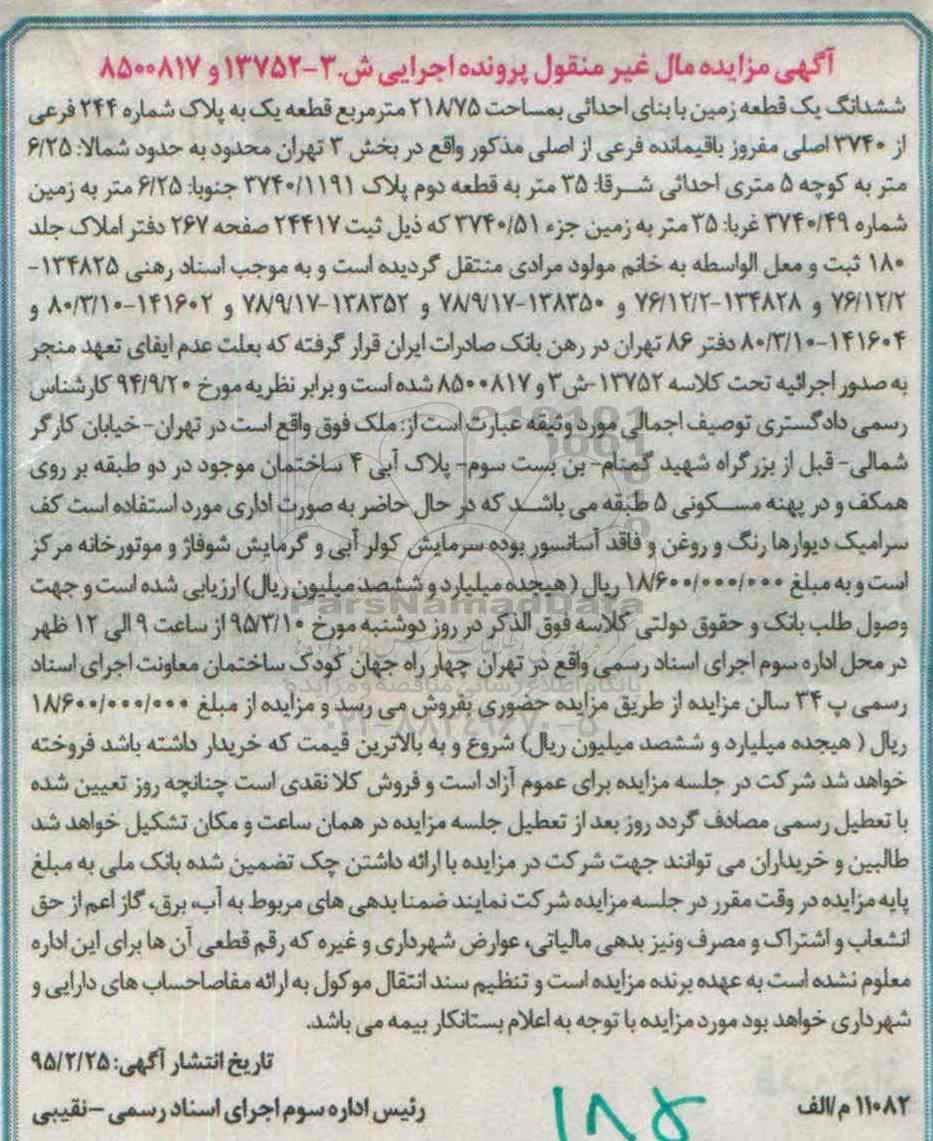 آگهی مزایده مال غیر منقول پرونده اجرایی ش.۳-۱۳۷۵۲ و ۸۵۰۰۸۱۷
ششدانگ یک قطعه زمین با بنای احداثی بمساحت ۲۱۸/۷۵ مترمربع قطعه یک به پلاک شماره ۲۴۴ فرعی
از ۳۷۴۰ اصلی مفروز باقیمانده فرعی از اصلی مذکور واقع در بخش ۳ تهران محدود به حدود شمالا: ۶/۲۵
متر به کوچه ۵ متری احداثی شرقا: ۳۵ متر به قطعه دوم پلاک ۳۷۴۰/۱۱۹۱ جنوبا: ۶/۲۵ متر به زمین
شماره ۳۷۴۰/۴۹ غربا: ۳۵ متر به زمین جزء ۳۷۴۰/۵۱ که ذیل ثبت ۲۴۴۱۷ صفحه ۲۶۷ دفتر املاک جلد
۱۸۰ ثبت و معل الواسطه به خانم مولود مرادی منتقل گردیده است و به موجب اسناد رهنی ۱۳۴۸۲۵-
۷۶/۱۲/۲ و ۱۳۴۸۲۸-۷۶/۱۲/۲ و ۱۳۸۳۵۰-۷۸/۹/۱۷ و ۱۳۸۳۵۲-۷۸/۹/۱۷ و ۱۴۱۶۰۲-۸۰/۳/۱۰ و
۱۴۱۶۰۴-۸۰/۳/۱۰ دفتر ۸۶ تهران در رهن بانک صادرات ایران قرار گرفته که بعلت عدم ایفای تعهد منجر
به صدور اجرائیه تحت کلاسه ۱۳۷۵۲-ش۳ و ۸۵۰۰۸۱۷ شده است و برابر نظریه مورخ ۹۴/۹/۲۰ کارشناس
رسمی دادگستری توصیف اجمالی مورد وثیقه عبارت است از: ملک فوق واقع است در تهران- خیابان کارگر
شمالی- قبل از بزرگراه شهید گمنام- بن بست سوم- پلاک آبی ۴ ساختمان موجود در دو طبقه بر روی
همکف و در پهنه مسکونی ۵ طبقه می باشد که در حال حاضر به صورت اداری مورد استفاده است کف
سرامیک دیوارها رنگ و روغن و فاقد آسانسور بوده سرمایش کولر آبی و گرمایش شوفاژ و موتورخانه مرکز
است و به مبلغ ۱۸/۶۰۰/۰۰۰/۰۰۰ ریال (هیجده میلیارد و ششصد میلیون ریال) ارزیابی شده است و جهت
ParsNamadData
وصول طلب بانک و حقوق دولتی کلاسه فوق الذکر در روز دوشنبه مورخ ۹۵/۳/۱۰ از ساعت ۹ الی ۱۲ ظهر
در محل اداره سوم اجرای اسناد رسمی واقع در تهران چهار راه جهان کودک ساختمان معاونت اجرای اسناد
پایگاه اطلاع رسانی مناقصه و مزایده
رسمی پ ۳۴ سالن مزایده از طریق مزایده حضوری بفروش می رسد و مزایده از مبلغ ۱۸/۶۰۰/۰۰۰/۰۰۰
ریال ( هیجده میلیارد و ششصد میلیون ریال) شروع و به بالاترین قیمت که خریدار داشته باشد فروخته
خواهد شد شرکت در جلسه مزایده برای عموم آزاد است و فروش کلا نقدی است چنانچه روز تعیین شده
با تعطیل رسمی مصادف گردد روز بعد از تعطیل جلسه مزایده در همان ساعت و مکان تشکیل خواهد شد
طالبین و خریداران می توانند جهت شرکت در مزایده با ارائه داشتن چک تضمین شده بانک ملی به مبلغ
پایه مزایده در وقت مقرر در جلسه مزایده شرکت نمایند ضمنا بدهی های مربوط به آب، برق، گاز اعم از حق
انشعاب و اشتراک و مصرف ونیز بدهی مالیاتی، عوارض شهرداری و غیره که رقم قطعی آن ها برای این اداره
معلوم نشده است به عهده برنده مزایده است و تنظیم سند انتقال موکول به ارائه مفاصاحساب های دارایی و
شهرداری خواهد بود مورد مزایده با توجه به اعلام بستانکار بیمه می باشد.
تاریخ انتشار آگهی: ۹۵/۲/۲۵
۱۱۰۸۲ م/الف
رئیس اداره سوم اجرای اسناد رسمی -نقیبی